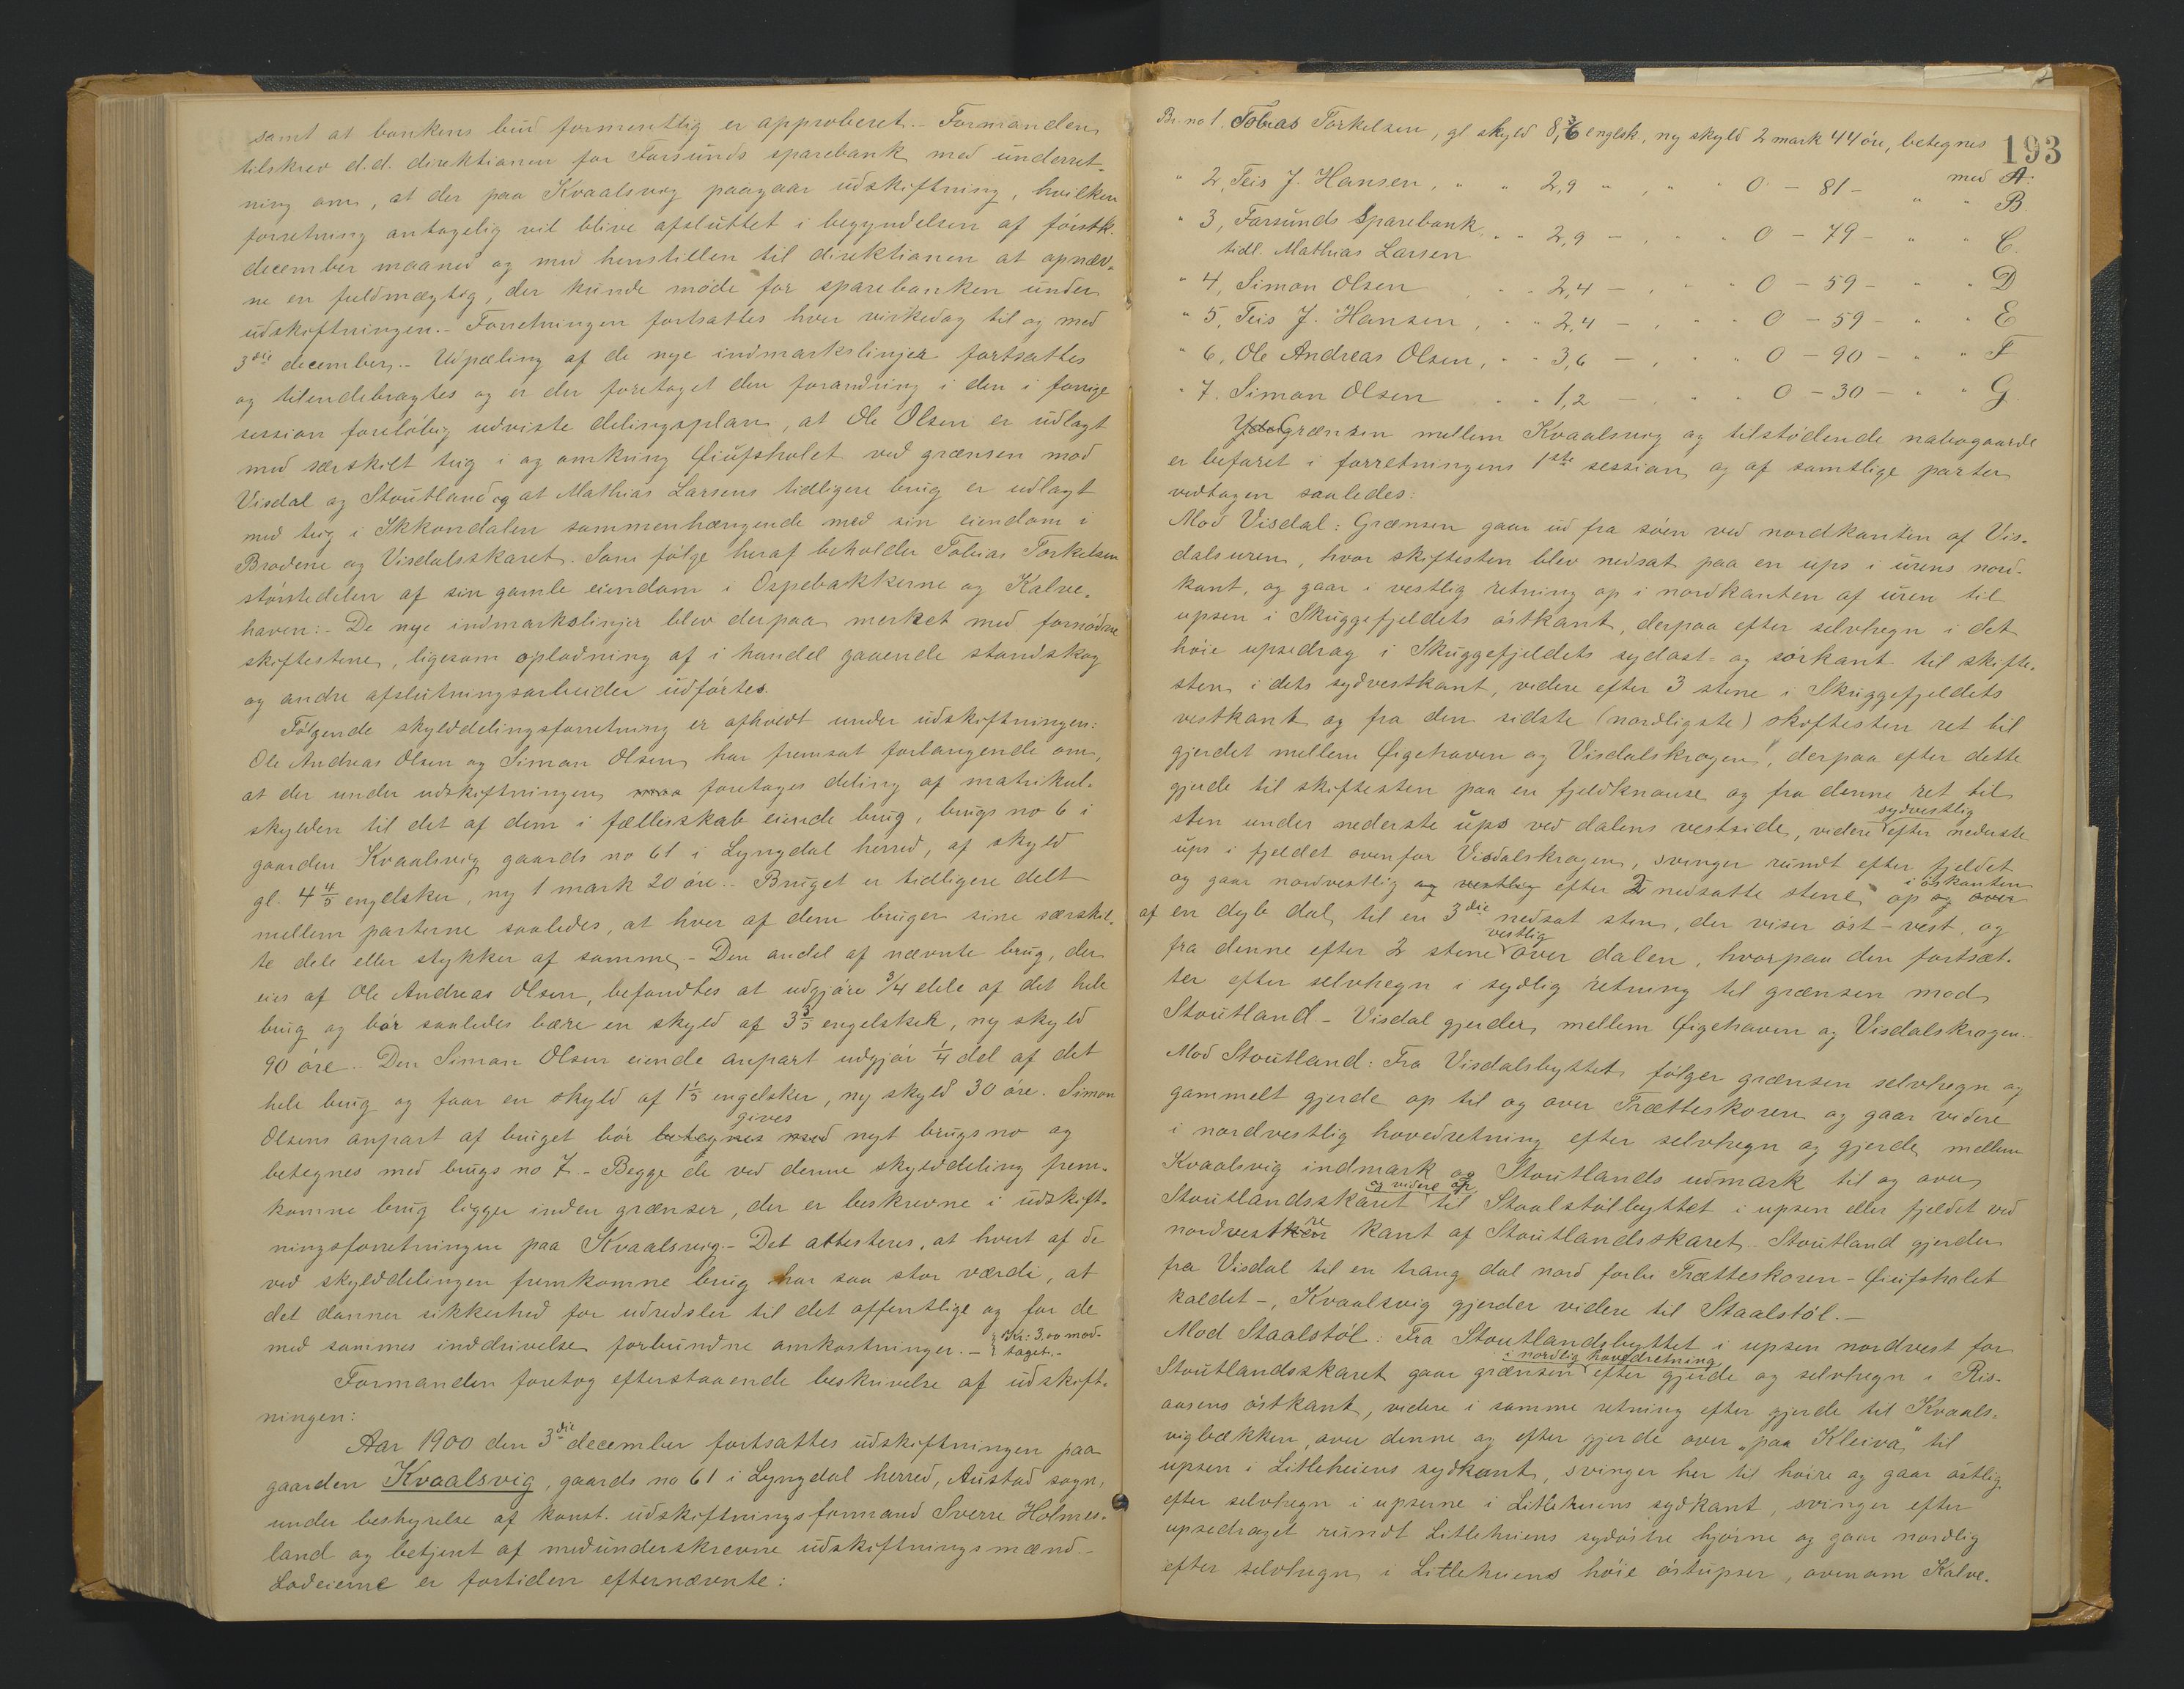 samt at bankens bud formentlig er approberet. - Formanden
tilskrev d.d. direktionen for Farsunds sparebank med underret-
ning om, at der paa Kvaalsvig paagaar udskiftning, hvilken
forretning antagelig vil blive afsluttet i begyndelsen af förstk.
december maaned og med henstillen til direktionen at opnæv-
ne en fuldmægtig, der kunde möde for sparebanken under
udskiftningen. - Forretningen fortsattes hver virkedag til og med
3die december. - Udpæling af de nye indmarkslinjer fortsattes
og tilendebragtes og er der foretaget den forandring i den i forrige
session foreløbig udviste delingsplan, at Ole Olsen er udlagt
med særskilt teig i og omkring Øiufsholet ved grænsen mod
Visdal og Stoutland og at Mathias Larsens tidligere brug er udlagt
med teig i Ikkondalen sammenhængende med sin eiendom i
Brodene og Visdalsskaret. Som følge heraf beholder Tobias Torkelsen
störstedelen af sin gamle eiendom i Ospebakkerne og Kalve-
haven: - De nye indmarkslinjer blev derpaa merket med fornödne
skiftestene, ligesom oplodning af i handel gaaende standskog
og andre afslutningsarbeider udförtes.
Fölgende skylddelingsforretning er afholdt under udskiftningen:
Ole Andreas Olsen og Simon Olsen har fremsat forlangende om,
at der under udskiftningen maa foretages deling af matrikul-
skylden til det af dem i fællesskab eiende brug, brugs no 6 i
gaarden Kvaalsvig gaards no 61 i Lyngdal herred, af skyld
gl. 4 4/5 engelsker, ny 1 mark 20 öre. - Bruget er tidligere delt
mellem parterne saaledes, at hver af dem bruger sine særskil-
te dele eller stykker af samme. - Den andel af nævnte brug, der
eies af Ole Andreas Olsen, befandtes at udgjöre 3/4 dele af det hele
brug og bör saaledes bære en skyld af 3 3/5 engelsker, ny skyld
90 öre. - Den Simon Olsen eiende anpart udgjör 1/4 del af det
hele brug og faar en skyld af 1 1/5 engelsker, ny skyld 30 öre. Simon
gives
Olsens anpart af bruget bör betegnes med nyt brugsno og
betegnes med brugs no 7. - Begge de ved denne skylddeling frem-
komne brug ligger inden grænser, der er beskrevne i udskift-
ningsforretningen paa Kvaalsvig. - Det attesteres, at hvert af de
ved skylddelingen fremkomne brug har saa stor værdi, at
det danner sikkerhed for udredsler til det offentlige og for de
med sammes inddrivelse forbundne omkostninger. - Kr: 3.00 mod-
taget. -
Formanden foretog efterstaaende beskrivelse af udskift-
ningen:
Aar 1900 den 3die december fortsattes udskiftningen paa
gaarden Kvaalsvig, gaards no 61 i Lyngdal herred, Austad sogn,
under bestyrelse af konst. udskiftningsformand Sverre Holmes-
land og betjent af medunderskrevne udskiftningsmænd. -
Lodeierne er fortiden efternævnte:
193
Br. no 1. Tobias Torkelsen, gl skyld 8,6 englsk, ny skyld 2 mark 44 öre, betegnes
med A.
" 2, Teis J. Hansen, " " 2,9 " , " " 0 - 81 - " " B.
" 3, Farsunds Sparebank, " " 2,9 - , " " 0 - 79 - " " C.
tidl. Mathias Larsen
" 4, Simon Olsen " " 2,4 - , " " 0 - 59 - " " D
" 5, Teis J. Hansen, " " 2,4 - , " " 0 - 59 - " " E
" 6, Ole Andreas Olsen, " " 3,6 - , " " 0 - 90 - " " F
" 7. Simon Olsen " " 1,2 - . " " 0 - 30 - " " G.
Grænsen mellem Kvaalsvig og tilstödende nabogaarde
er befaret i forretningens 1ste session og af samtlige parter
vedtagen saaledes:
Mod Visdal: Grænsen gaar ud fra söen ved nordkanten af Vis-
dalsuren, hvor skiftesten blev nedsat paa en ups i urens nord-
kant, og gaar i vestlig retning op i nordkanten af uren til
upsen i Skuggefjeldets östkant, derpaa efter selvhegn i det
höie upsedrag i Skuggefjeldets sydost- og sörkant til skifte-
sten i dets sydvestkant, videre efter 3 stene i Skuggefjeldets
vestkant og fra den sidste (nordligste) skiftesten ret til
gjerdet mellem Øigehaven og Visdalskrogen, derpaa efter dette
gjerde til skiftesten paa en fjeldknause og fra denne ret til
sydvestlig
sten under nederste ups ved dalens vestside, videre efter nederste
ups i fjeldet ovenfor Visdalskrogen, svinger rundt efter fjeldet
i öskanten
og gaar nordvestlig og vestlig efter 2 nedsatte stene op og over
af en dyb dal til en 3die nedsat sten, der viser öst-vest, og
vestlig
fra denne efter 2 stene over dalen, hvorpaa den fortsæt-
ter efter selvhegn i sydlig retning til grænsen mod
Stoutland - Visdal gjerder mellem Øigehaven og Visdalskrogen. -
Mod Stoutland: Fra Visdalsbyttet følger grænsen selvhegn og
gammelt gjerde op til og over Trætteskoren og gaar videre
i nordvestlig hovedretning efter selvhegn og gjerde mellem
Kvaalsvig indmark og Stoutlands udmark til og over
og videre op
Stoutlandsskaret til Staalstölbyttet i upsen eller fjeldet ved
re
nordvestken kant af Stoutlandsskaret. Stoutland gjerder
fra Visdal til en trang dal nord forbi Trætteskoren - Øiufsholet
kaldet -, Kvaalsvig gjerder videre til Staalstöl. -
Mod Staalstöl: Fra Stoutlandsbyttet i upsen nordvest for
i nordlig hovedretning
Stoutlandsskaret gaar grænsen efter gjerde og selvhegn i Ris-
aasens östkant, videre i samme retning efter gjerde til Kvaals-
vigbækken, over denne og efter gjerde over "paa Kleiva" til
upsen i Litleheiens sydkant, svinger her til höire og gaar östlig
efter selvhegn i upserne i Litleheiens sydkant, svinger efter
upsedraget rundt Litleheiens sydöstre hjörne og gaar nordlig
efter selvhegn i Litleheiens höie östupser, ovenom Kalve-